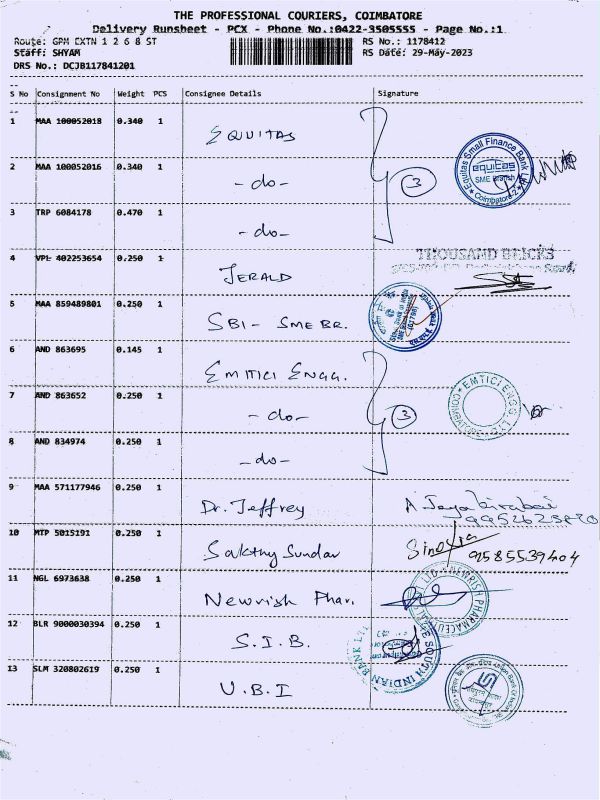 THE PROFESSIONAL COURIERS, COIMBATORE
Delivery Runsheet - PCX - Phone No.:0422-3505555 - Page No.:1
Route: GPM EXTN 1 2 6 8 ST RS No.: 1178412
Staff: SHYAM RS Date: 29-May-2023
DRS No.: DCJB117841201
S No Consignment No Weight PCS Consignee Details Signature
1 MAA 100052018 0.340 1 EQUITAS
Equitas Small Finance Bank
equitas
SME Branch
Coimbatore-2
2 MAA 100052016 0.340 1 -do- 3
3 TRP 6084178 0.470 1 -do-
4 VPL 402253654 0.250 1 JERALD THOUSAND BRICKS
5 MAA 859489801 0.250 1 SBI- SME BR.
6 AND 863695 0.145 1 EMITICI ENGG.
7 AND 863652 0.250 1 -do- 3 EMTICI ENGG.
8 AND 834974 0.250 1 -do-
9 MAA 571177946 0.250 1 Dr. Jeffrey
10 MTP 5015191 0.250 1 Sakthy Sundar 9585539404
11 NGL 6973638 0.250 1 Newrish Phar. NEWRISH PHARMACEUT
12 BLR 9000030394 0.250 1 S.I.B. SOUTH INDIAN BANK LTD
13 SLM 320802619 0.250 1 U.B.I